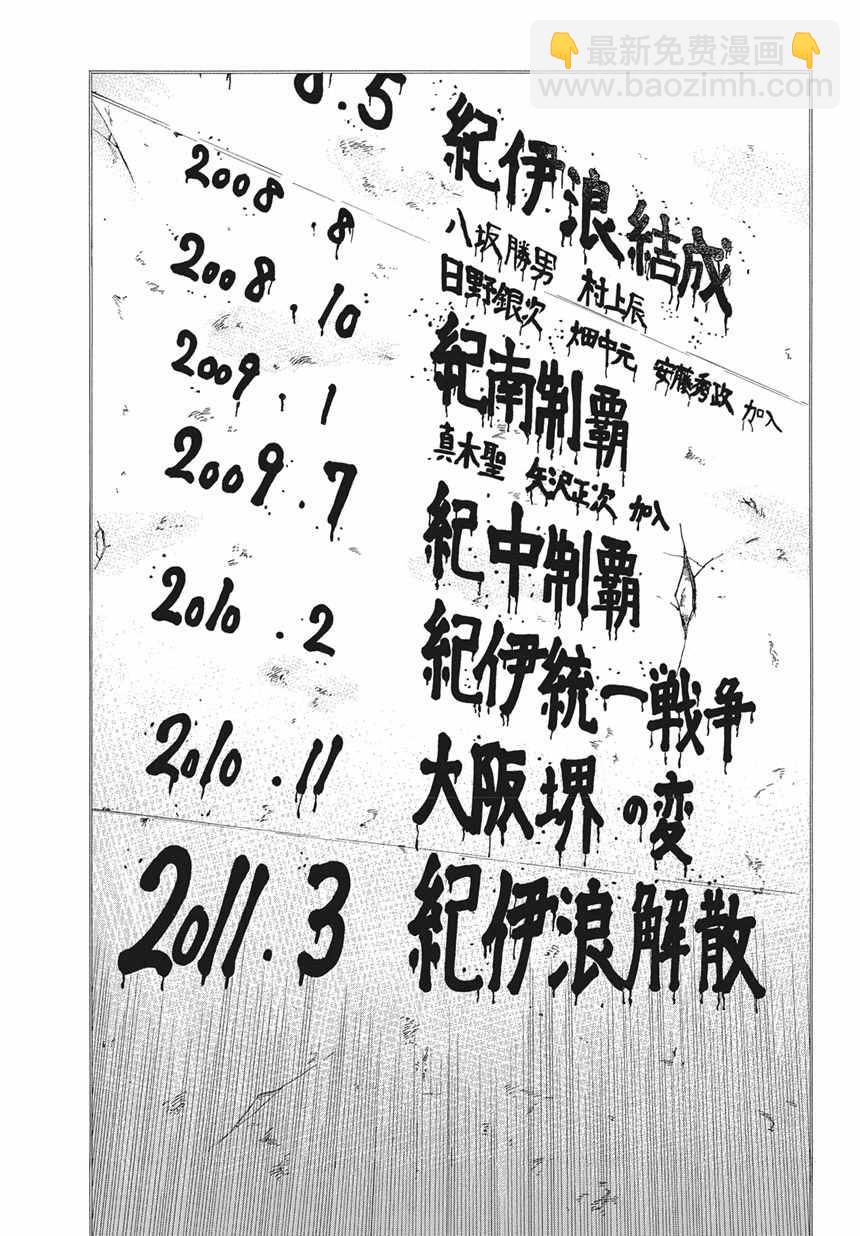 👇最新免费漫画👇
www.baozimh.com
8.5 紀伊浪結成
2008.8 八坂勝男 村上辰
日野銀次 畑中元 安藤秀政 加入
2008.10 紀南制覇
2009.1 真木聖 矢沢正次 加入
2009.7 紀中制覇
2010.2 紀伊統一戦争
2010.11 大阪堺の変
2011.3 紀伊浪解散